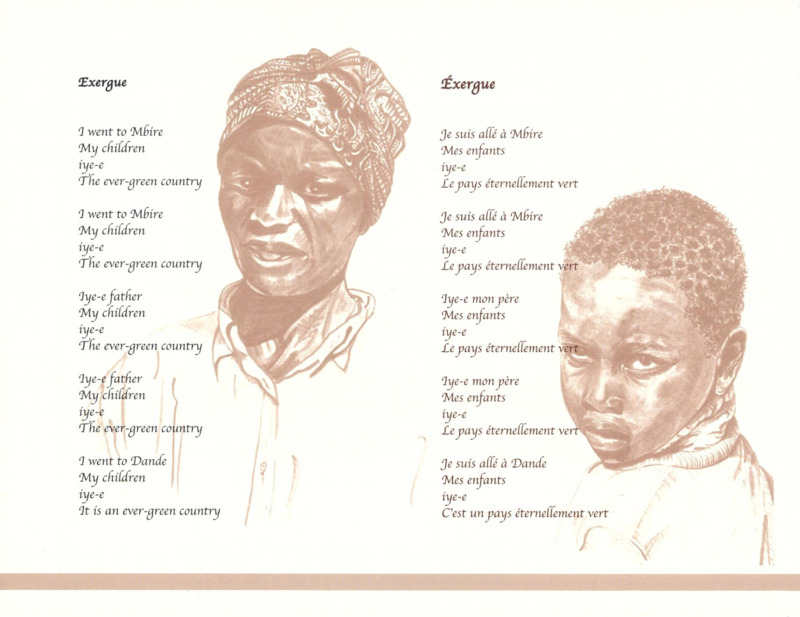 Exergue
I went to Mbire
My children
iye-e
The ever-green country
I went to Mbire
My children
iye-e
The ever-green country
Iye-e father
My children
iye-e
The ever-green country
Iye-e father
My children
iye-e
The ever-green country
I went to Dande
My children
iye-e
It is an ever-green country
Éxergue
Je suis allé à Mbire
Mes enfants
iye-e
Le pays éternellement vert
Je suis allé à Mbire
Mes enfants
iye-e
Le pays éternellement vert
Iye-e mon père
Mes enfants
iye-e
Le pays éternellement vert
Iye-e mon père
Mes enfants
iye-e
Le pays éternellement vert
Je suis allé à Dande
Mes enfants
iye-e
C'est un pays éternellement vert